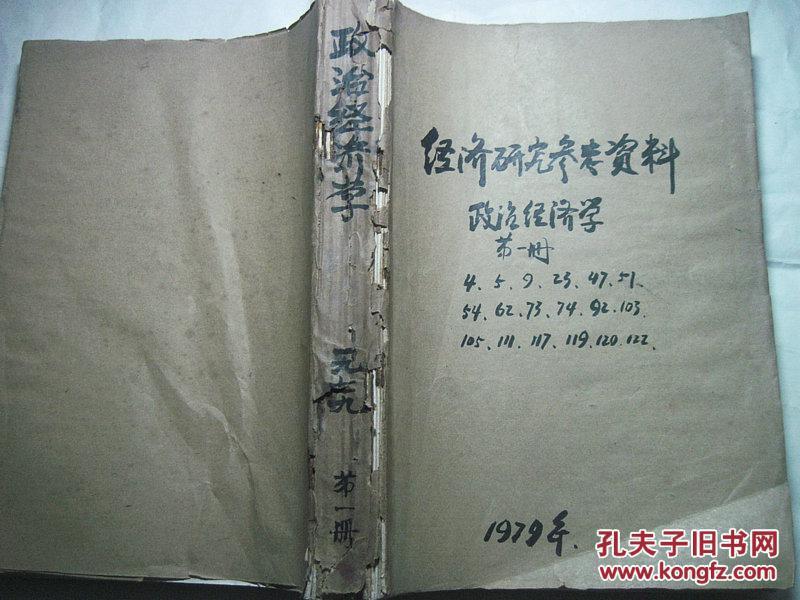 政治经济学
第一册
经济研究参考资料
政治经济学
第一册
4、5、9、23、47、51、
54、62、73、74、92、103
105、111、117、119、120、122、
1979年.
孔夫子旧书网
www.kongfz.com